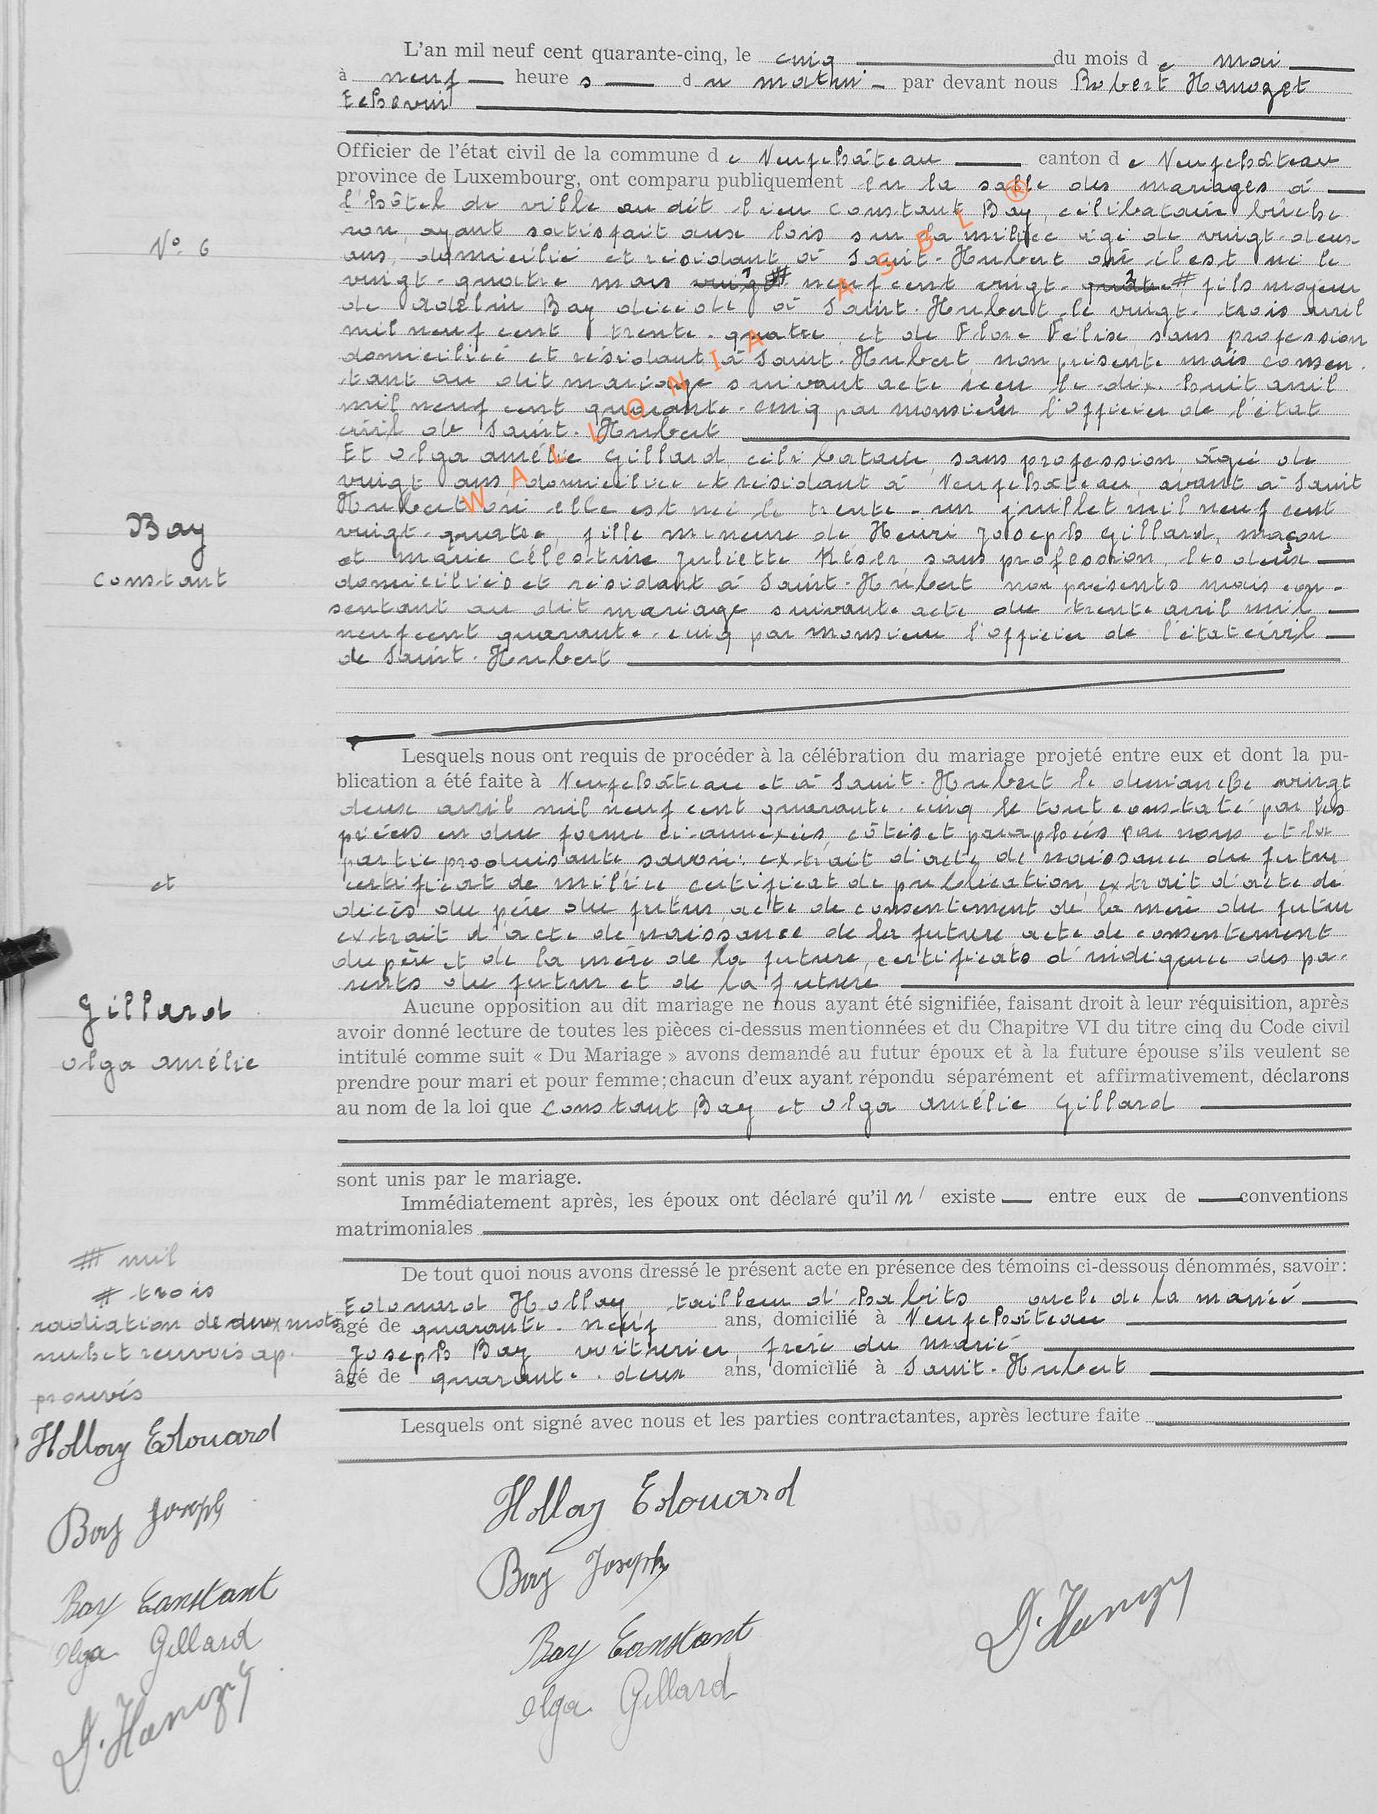 L'an mil neuf cent quarante-cinq, le cinq du mois de mai
à neuf heures du matin par devant nous Robert Hanozet
Echevin
Officier de l'état civil de la commune de Neufchâteau canton de Neufchâteau
province de Luxembourg, ont comparu publiquement en la salle des mariages à
l'hôtel de ville au dit lieu Constant Bay, célibataire bûche
ron, ayant satisfait aux lois sur la milice âgé de vingt-deux
ans, domicilié et résidant à Saint-Hubert où il est né le
vingt-quatre mars vingt # neuf cent vingt-quatre # fils majeur
de Adelin Bay décédé à Saint-Hubert le vingt-trois avril
mil neuf cent trente-quatre et de Flore Félise sans profession
domiciliée et résidant à Saint-Hubert, non présente mais consen-
tant au dit mariage suivant acte reçu le dix-huit avril
mil neuf cent quarante-cinq par Monsieur l'officier de l'état
civil de Saint-Hubert
Et Olga Amélie Gillard, célibataire, sans profession, âgée de
vingt ans domiciliée et résidant à Neufchâteau, avant à Saint
Hubert où elle est née le trente-un juillet mil neuf cent
vingt-quatre, fille mineure de Henri Joseph Gillard, maçon
et Marie Célestine Juliette Keser, sans profession, les deux
domiciliés et résidant à Saint-Hubert non présents mais con-
sentant au dit mariage suivant acte du trente avril mil
neuf cent quarante-cinq par Monsieur l'officier de l'état civil
de Saint-Hubert
Lesquels nous ont requis de procéder à la célébration du mariage projeté entre eux et dont la pu-
blication a été faite à Neufchâteau et à Saint-Hubert le dimanche vingt
deux avril mil neuf cent quarante-cinq le tout constaté par les
pièces en due forme ci-annexées, côtés et paraphées par nous et la
partie produisante savoir: extrait d'acte de naissance du futur
certificat de milice certificat de publication, extrait d'acte de
décès du père du futur, acte de consentement de la mère du futur
extrait d'acte de naissance de la future acte de consentement
du père et de la mère de la future, certificats d'indigence des pa-
rents du futur et de la future
Aucune opposition au dit mariage ne nous ayant été signifiée, faisant droit à leur réquisition, après
avoir donné lecture de toutes les pièces ci-dessus mentionnées et du Chapitre VI du titre cinq du Code civil
intitulé comme suit « Du Mariage » avons demandé au futur époux et à la future épouse s'ils veulent se
prendre pour mari et pour femme; chacun d'eux ayant répondu séparément et affirmativement, déclarons
au nom de la loi que Constant Bay et Olga Amélie Gillard
sont unis par le mariage.
Immédiatement après, les époux ont déclaré qu'il n' existe entre eux de conventions
matrimoniales
De tout quoi nous avons dressé le présent acte en présence des témoins ci-dessous dénommés, savoir:
Edouard Hollay, tailleur d'habits oncle de la mariée
âgé de quarante-neuf ans, domicilié à Neufchâteau
Joseph Bay voiturier, frère du marié
âgé de quarante-deux ans, domicilié à Saint-Hubert
Lesquels ont signé avec nous et les parties contractantes, après lecture faite
Hollay Edouard
Bay Joseph
Bay Constant
Olga Gillard
No 6
Bay
Constant
et
Gillard
Olga Amélie
# mil
# trois
radiation de deux mots
nuls et renvois ap-
prouvés
Hollay Edouard
Bay Joseph
Bay Constant
Olga Gillard
WALLONIA ASBL ®